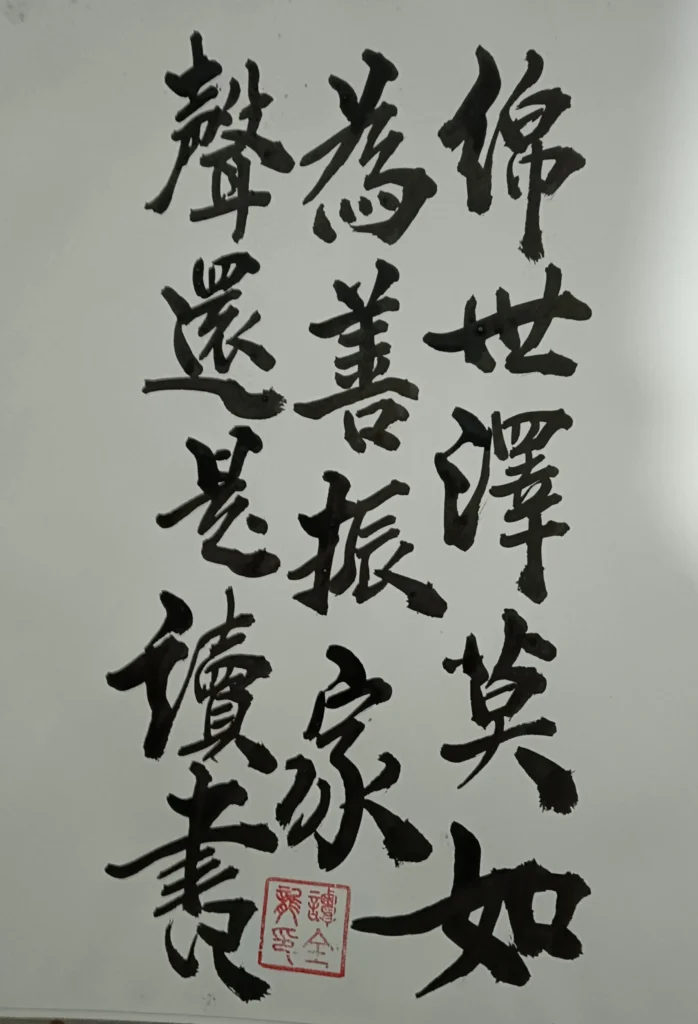 綿世澤莫如
為善振家
聲還是讀書
譚全
龍印